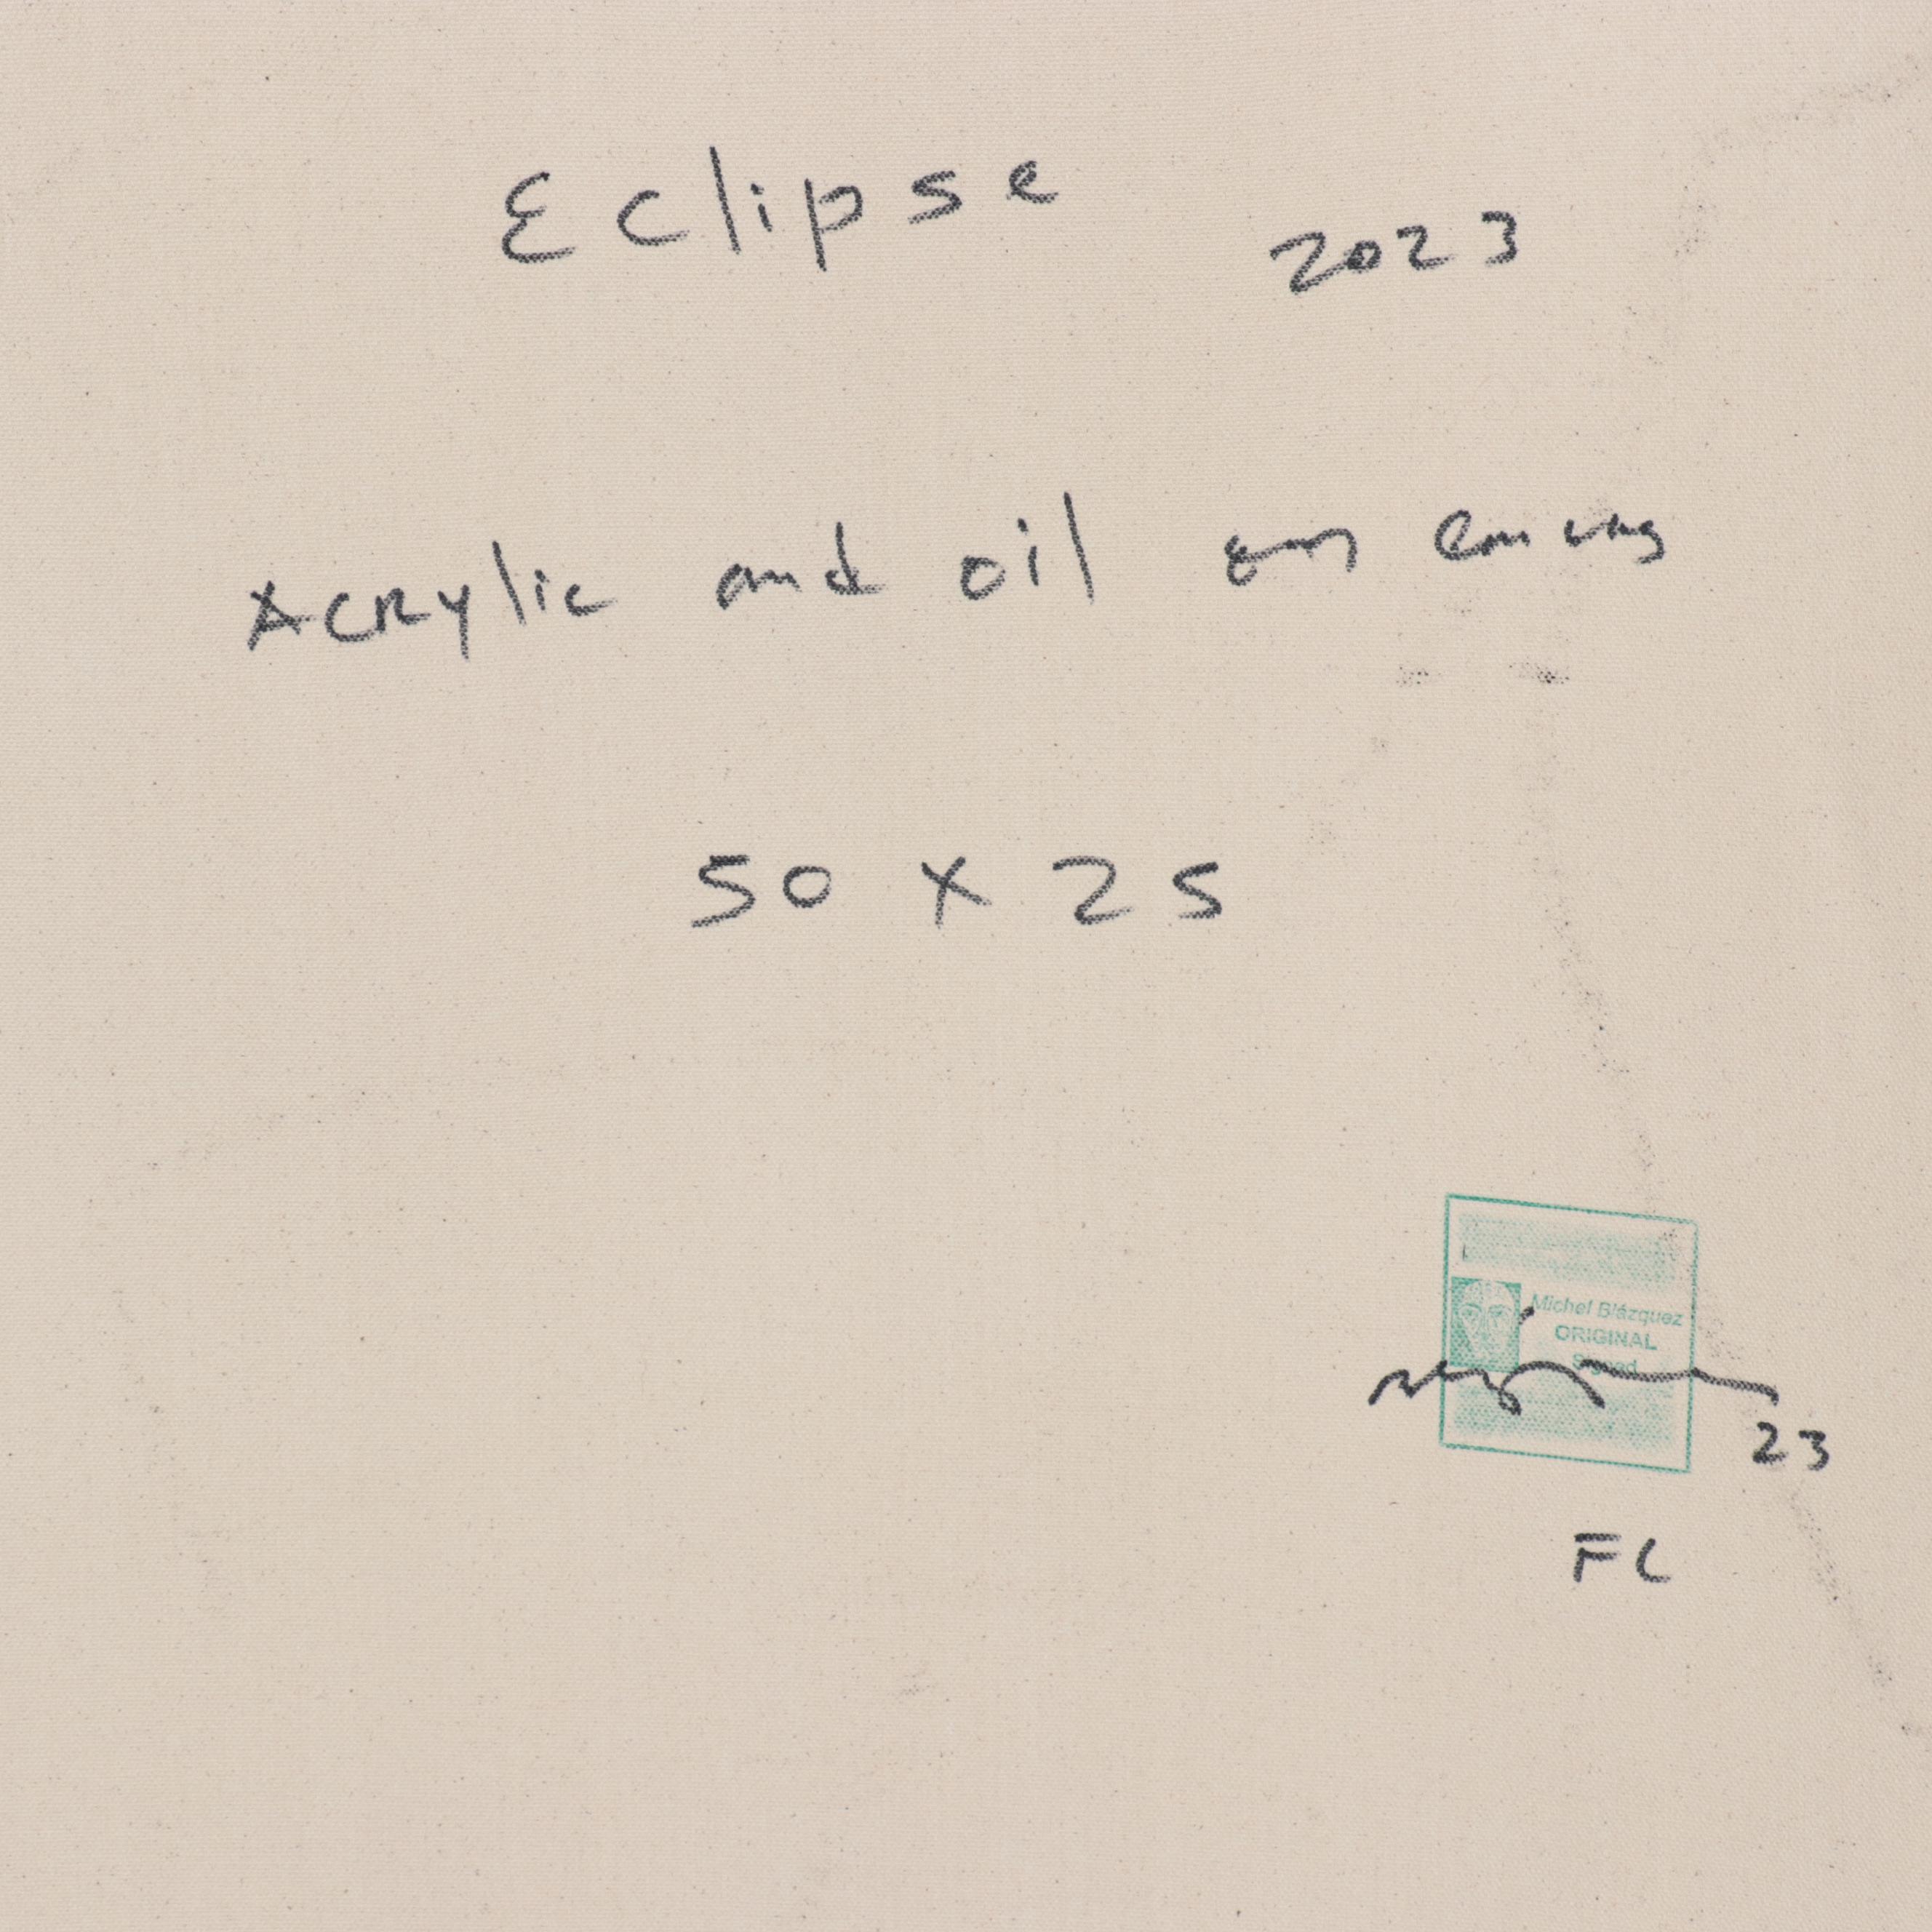 Eclipse 2023
Acrylic and oil on canvas
50 x 25
Michel Blázquez
ORIGINAL
Signed
23
FC